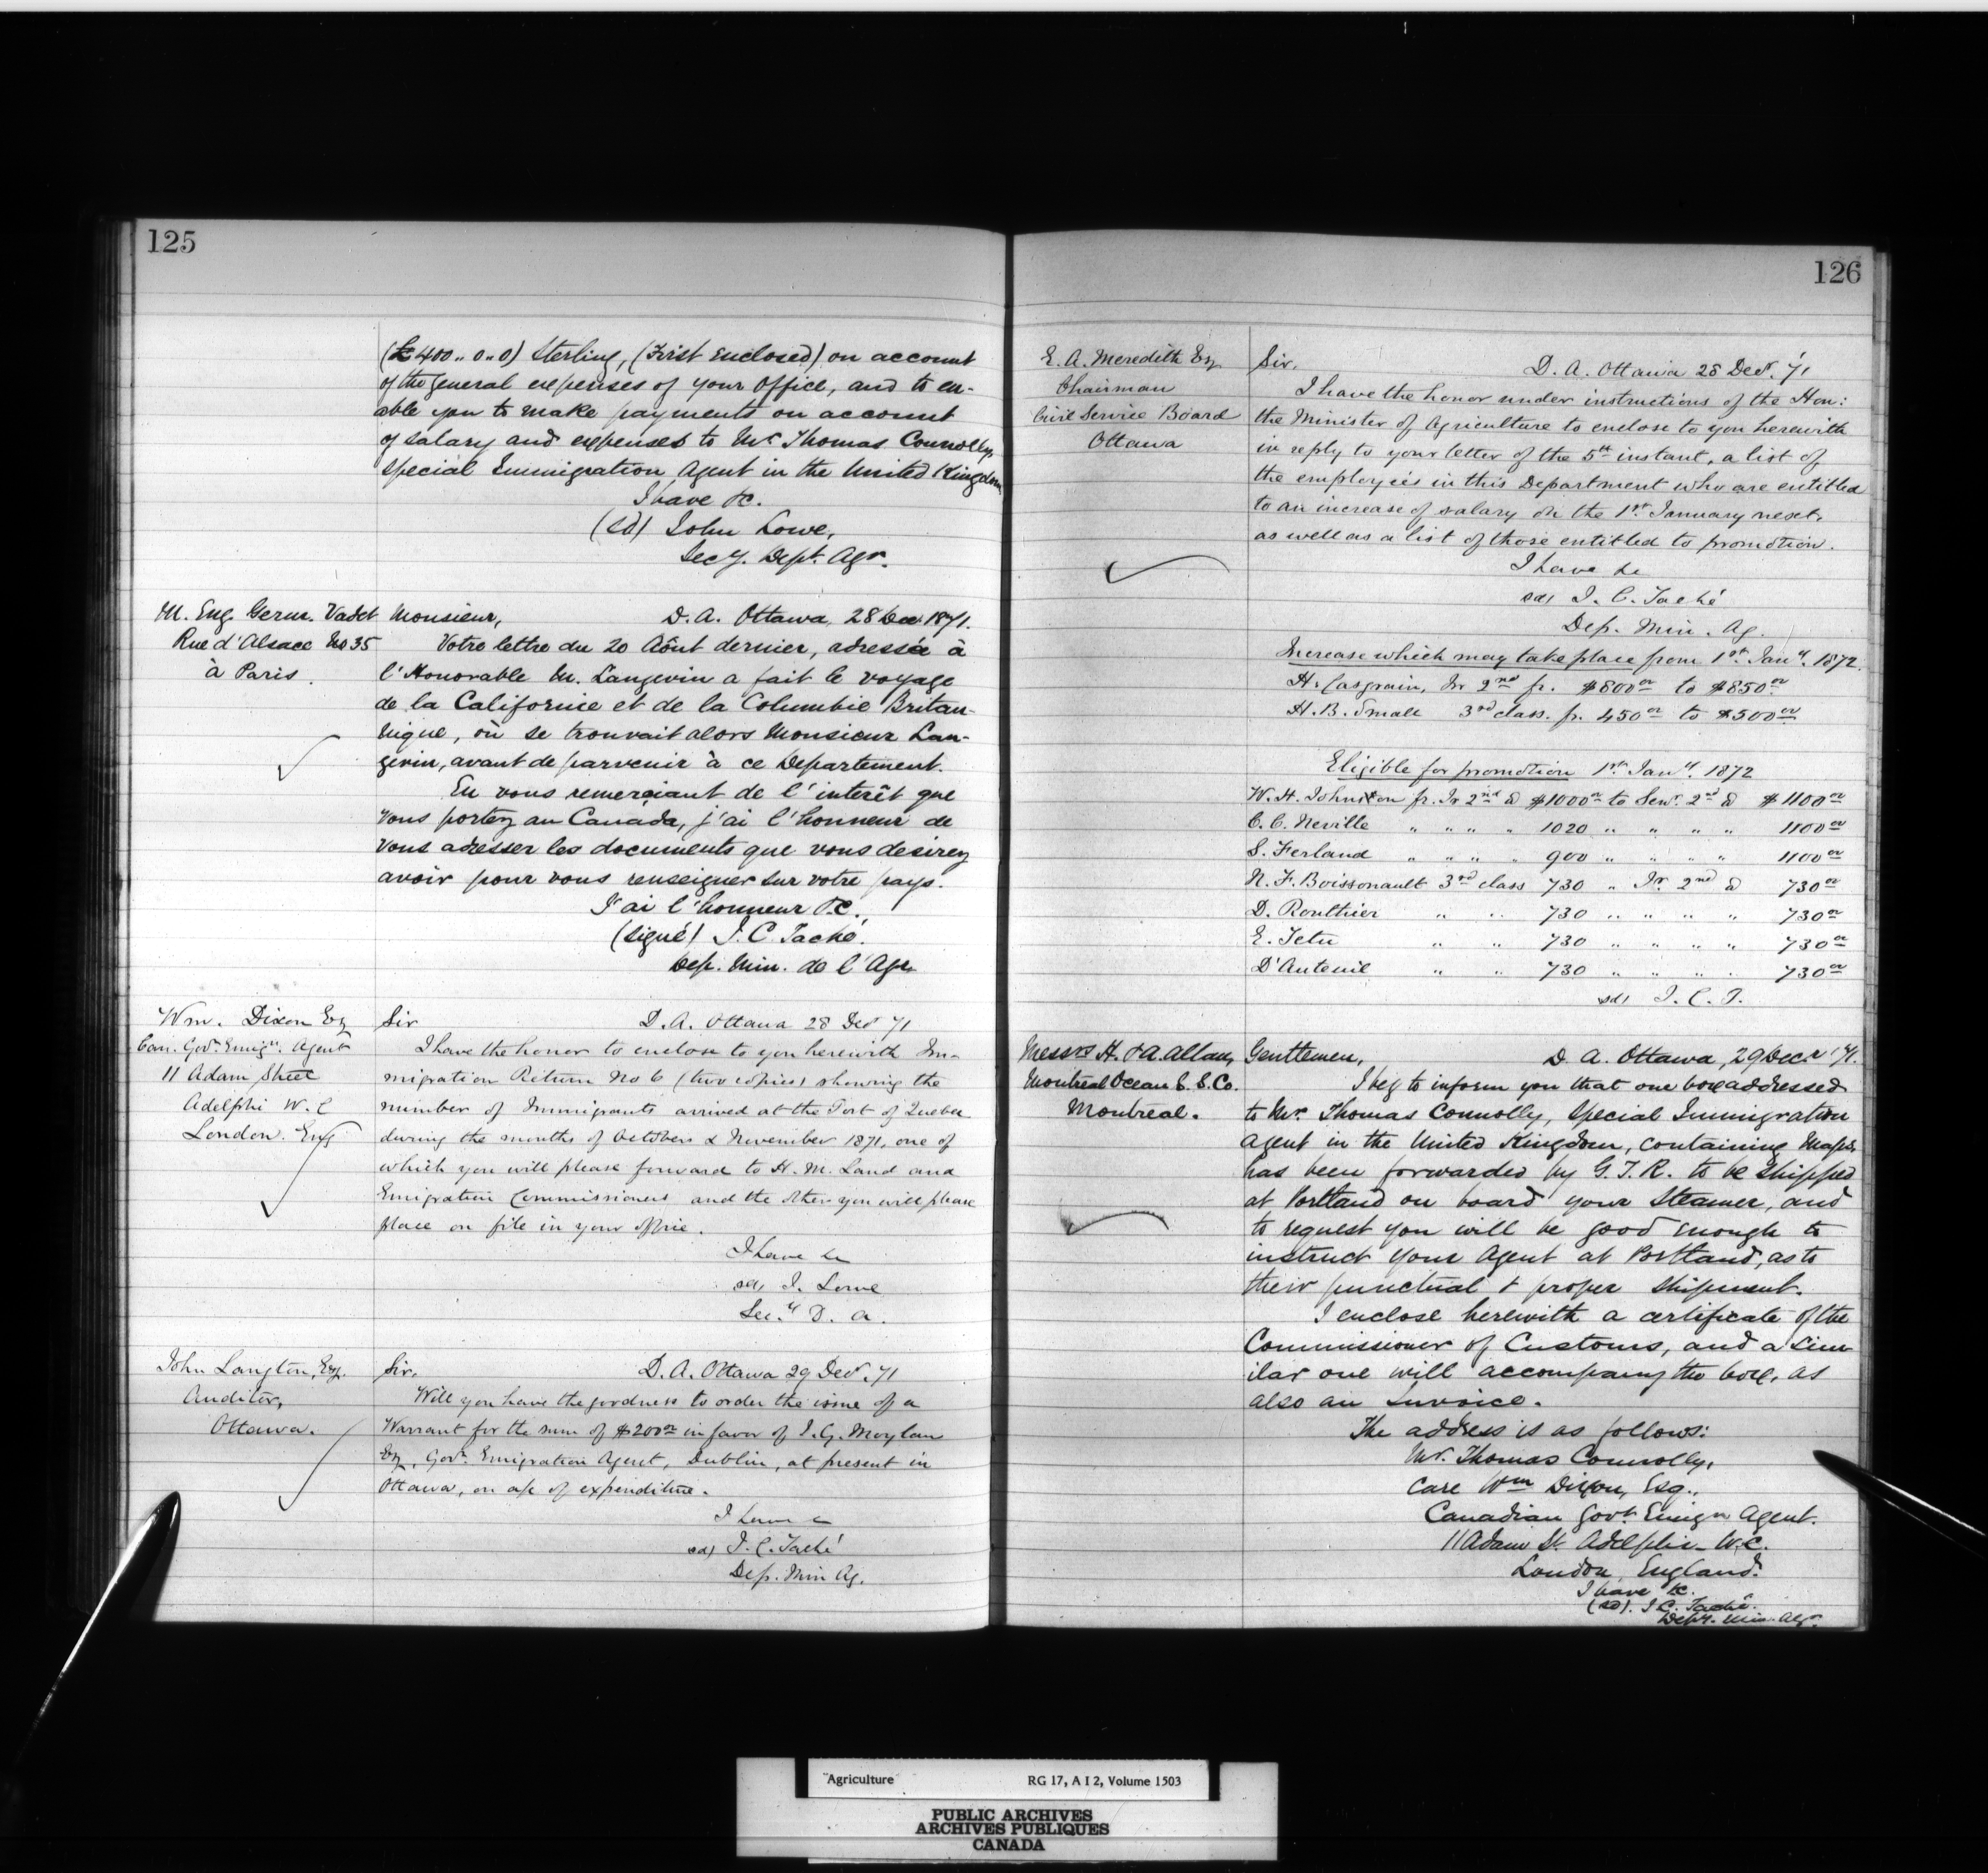 125
(£400..0..0) Sterling, (First enclosed) on account
of the general expenses of your Office, and to en-
able you to make payments on account
of salary and expenses to Mr Thomas Connolly,
Special Immigration Agent in the United Kingdom
I have &c.
(sd) John Lowe,
Secy. Dept. Agr.
M. Eug. Germ. Vadet
Rue d'Alsace No 35
à Paris.
Monsieur, D. A. Ottawa, 28 Dec 1871.
Votre lettre du 20 Aôut dernier, adressée à
l'Honorable M. Langevin a fait le voyage
de la Californie et de la Columbie Britan-
nique, où se trouvait alors Monsieur Lan-
gevin, avant de parvenir à ce Departement.
En vous remerciant de l'interêt que
vous portez au Canada, j'ai l'honneur de
vous adresser les documents que vous desirez
avoir pour vous renseigner sur votre pays.
J'ai l'honneur &c.,
(signé) J. C. Taché.
Dep. Min. de l'Agr.
Wm. Dixon Esq
Can. Govt. Emign. Agent
11 Adam Street
Adelphi W. C
London. Eng
Sir D. A. Ottawa 28 Decr 71
I have the honor to enclose to you herewith Im-
migration Return No 6 (two copies) showing the
number of Immigrants arrived at the Port of Quebec
during the months of Octobers & November 1871, one of
which you will please forward to H. M. Land and
Emigration Commissioners and the other you will please
place on file in your office.
I have &c
sd, J. Lowe
Secy. D. A.
John Langton, Esq.
Auditor,
Ottawa.
Sir, D. A. Ottawa 29 Decr. 71
Will you have the goodness to order the issue of a
Warrant for the sum of $200 00 in favor of J. G. Moylan
Esq, Govt. Emigration Agent, Dublin, at present in
Ottawa, on a/c of expenditure.
I have &c
sd) J. C. Taché
Dep. Min Ag.
126
E. A. Meredith Esq
Chairman
Civil Service Board
Ottawa
Sir, D. A. Ottawa 28 Decr. '71
I have the honor under instructions of the Hon:
the Minister of Agriculture to enclose to you herewith
in reply to your letter of the 5th instant, a list of
the employeés in this Department who are entitled
to an increase of salary on the 1st January next,
as well as a list of those entitled to promotion.
I have &c
sd, J. C. Taché
Dep. Min. Ag.
Increase which may take place from 1st Jany. 1872.
H. Casgrain, Jr 2nd fr. $800 00 to $850 00
H. B. Small 3rd class. fr. 450 00 to $500 00
Eligible for promotion 1st Jany. 1872
W. H. Johnston fr. Jr 2nd cl $1000 00 to Senr. 2nd cl $1100 00
C. C. Neville " " " " 1020 " " " " 1100 00
S. Ferland " " " " 900 " " " " 1100 00
N. F. Boissonault 3rd class 730 " Jr. 2nd cl 730 00
D. Routhier " " 730 " " " " 730 00
E. Tetu " " 730 " " " " 730 00
D'Auteuil " " 730 " " " " 730 00
sd, J. C. T.
Messrs H. & A. Allan,
Montreal Ocean S. S. Co.
Montreal.
Gentlemen, D. A. Ottawa, 29 Decr '71.
I beg to inform you that one box addressed
to Mr. Thomas Connolly, Special Immigration
Agent in the United Kingdom, containing Maps,
has been forwarded by G. T. R. to be shipped
at Portland on board your Steamer, and
to request you will be good enough to
instruct your Agent at Portland, as to
their punctual & proper shipment.
I enclose herewith a certificate of the
Commissioner of Customs, and a Sim
ilar one will accompany the box, as
also an Invoice.
The address is as follows:
Mr. Thomas Connolly,
Care Wm Dixon, Esq.,
Canadian Govt. Emign Agent.
11 Adam St. Adelphi- W.C.
London, England.
I have &c.
(sd). J C. Taché.
Depy. Min. Agr.
Agriculture RG 17, A I 2, Volume 1503
PUBLIC ARCHIVES
ARCHIVES PUBLIQUES
CANADA